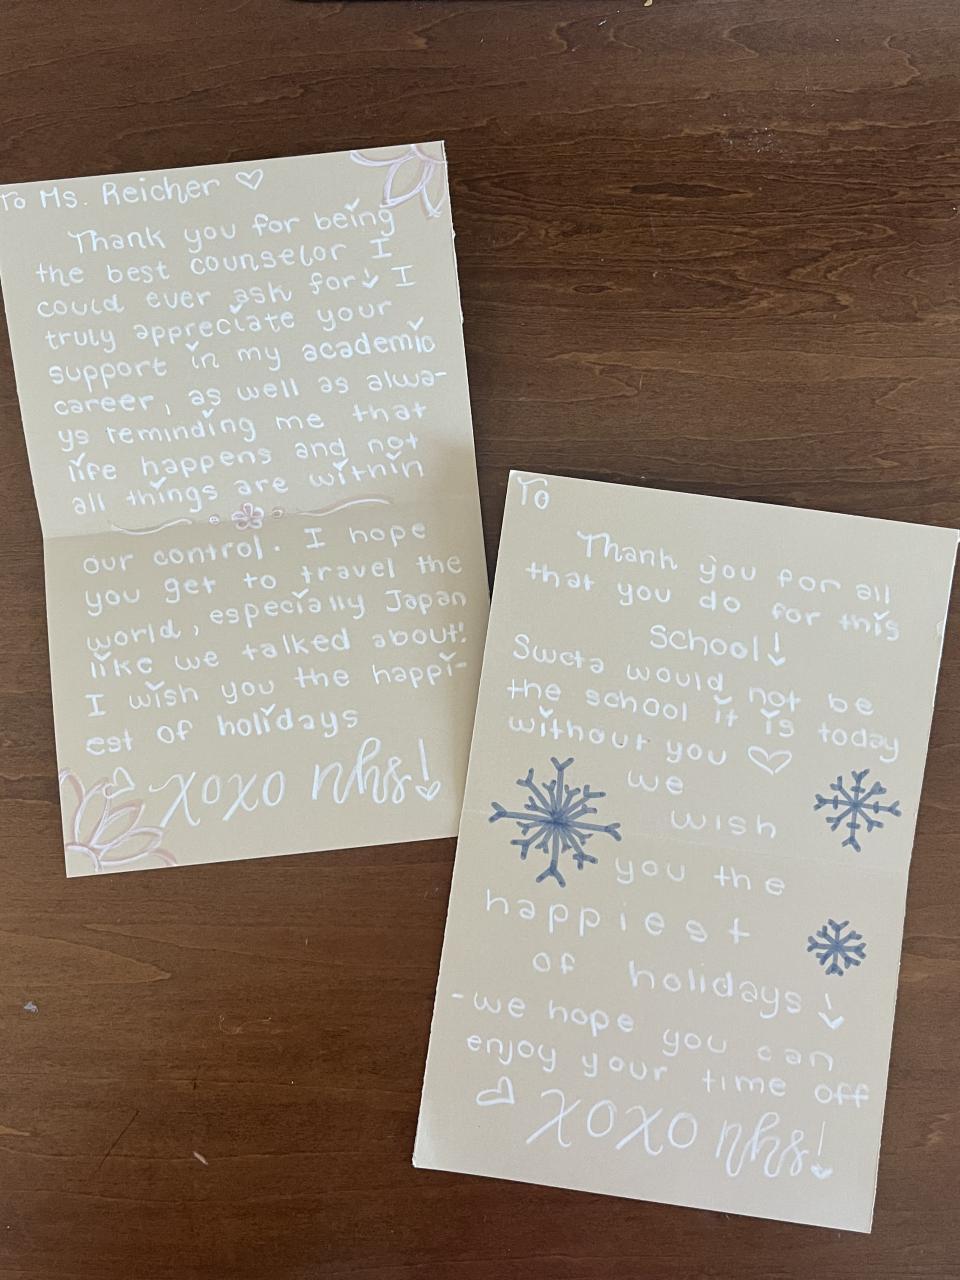 To Ms. Reicher ♡
Thank you for being
the best counselor I
could ever ask for! I
truly appreciate your
support in my academic
career, as well as alwa-
ys reminding me that
life happens and not
all things are within
our control. I hope
you get to travel the
world, especially Japan
like we talked about!
I wish you the happi-
est of holidays
♡ xoxo nhs!
To
Thank you for all
that you do for this
school!
Swcta would not be
the school it is today
without you ♡
we
wish
you the
happiest
of holidays!
-we hope you can
enjoy your time off
♡ xoxo nhs!